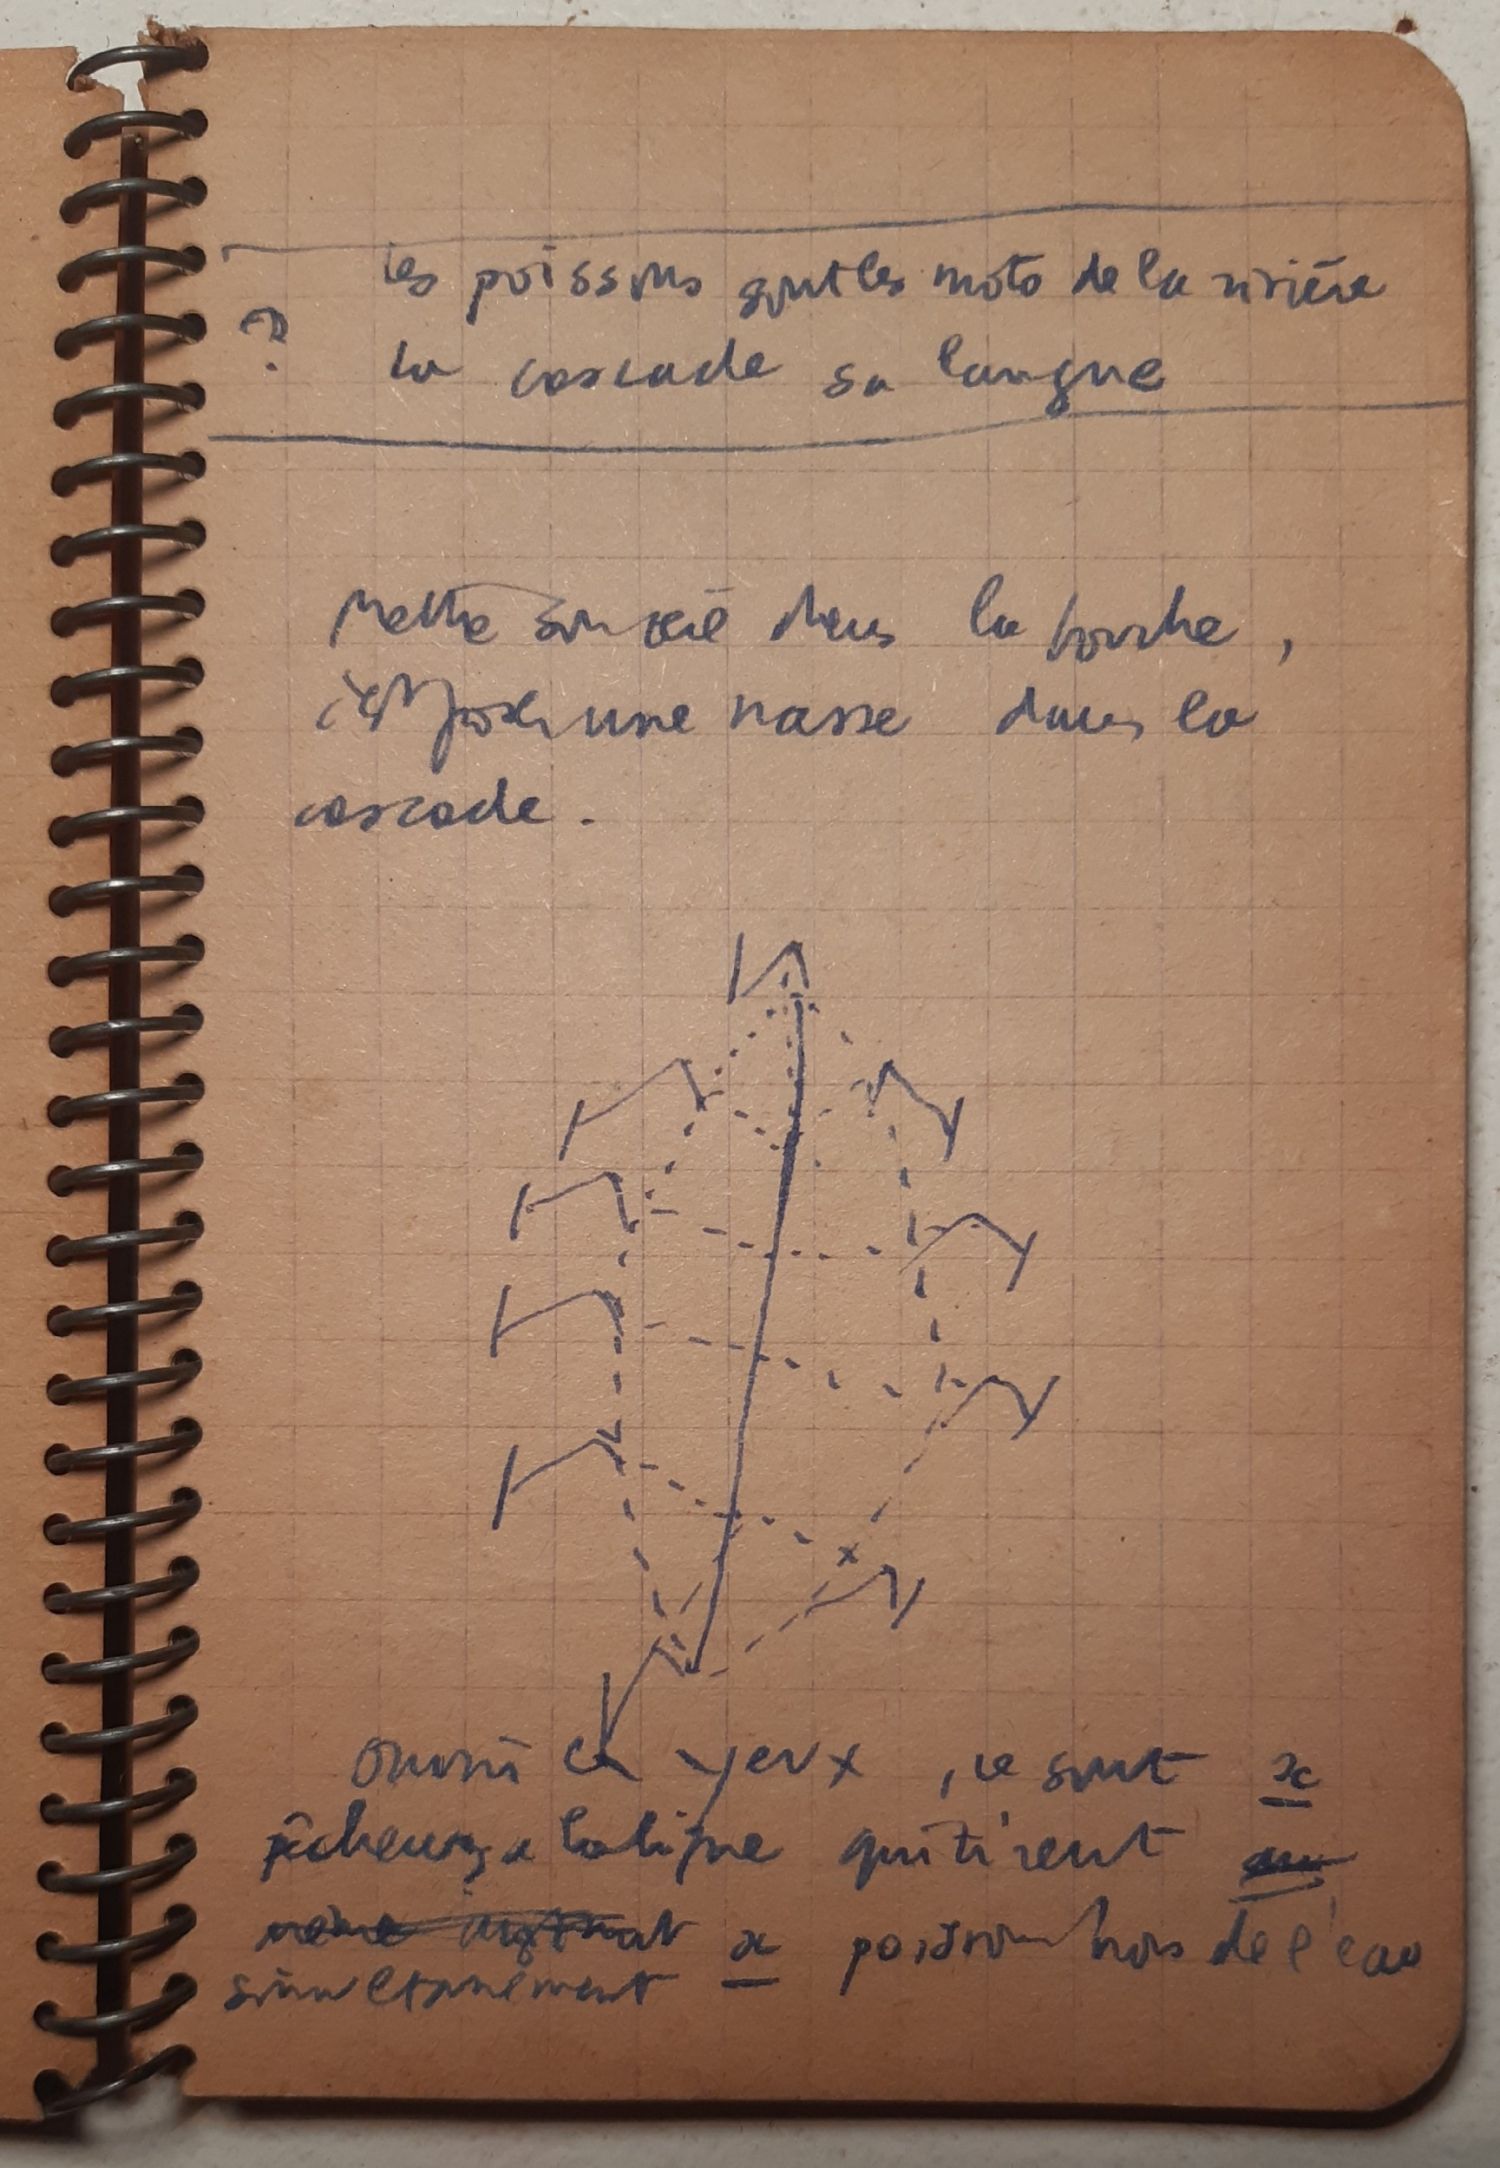 Les poissons sont les mots de la rivière
? la cascade sa langue
Mettre son œil dans la bouche,
poser une nasse dans la
cascade.
Ouvrir les yeux, ce sont x
pêcheurs à la ligne qui tirent au
même instant x poisson hors de l'eau
simultanément